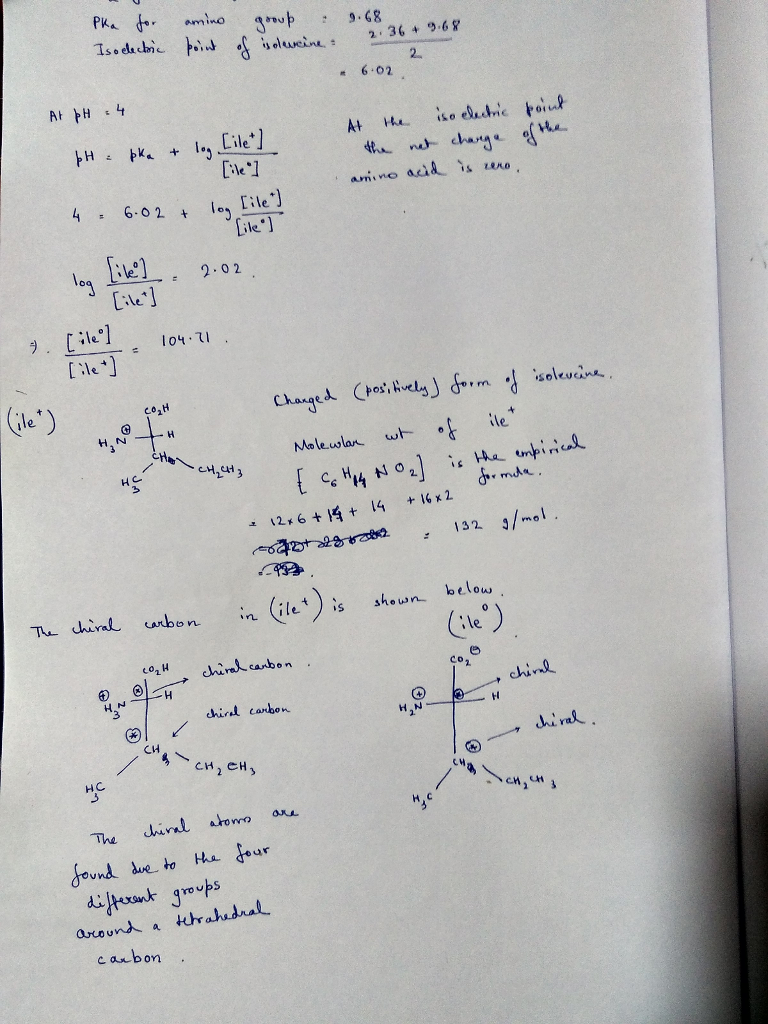 PKa for amino group : 9.68
Isoelectric point of isoleucine = 2.36 + 9.68
2
= 6.02.
At pH = 4
At the isoelectric point
the net charge of the
amino acid is zero.
pH = pka + log [ile⁺]
[ile°]
4 = 6.02 + log [ile⁺]
[ile°]
log [ile°] = 2.02.
[ile⁺]
⇒. [ile°] = 104.71.
[ile⁺]
(ile⁺)
CO₂H
H₃N ⊕
H
CH
H₃C
CH₂CH₃
Charged (positively) form of isoleucine.
Molecular wt of ile⁺
[C₆H₁₄NO₂] is the empirical
formula.
= 12×6 + 14 + 14 + 16×2
= 132 g/mol.
The chiral carbon in (ile⁺) is shown below.
(ile°)
CO₂H
chiral carbon.
⊕
H₃N
H
chiral carbon
CH
CH₂CH₃
H₃C
CO₂ ⊖
chiral
⊕
H₂N
H
chiral.
CH
H₃C
CH₂CH₃
The chiral atoms are
found due to the four
different groups
around a tetrahedral
carbon.